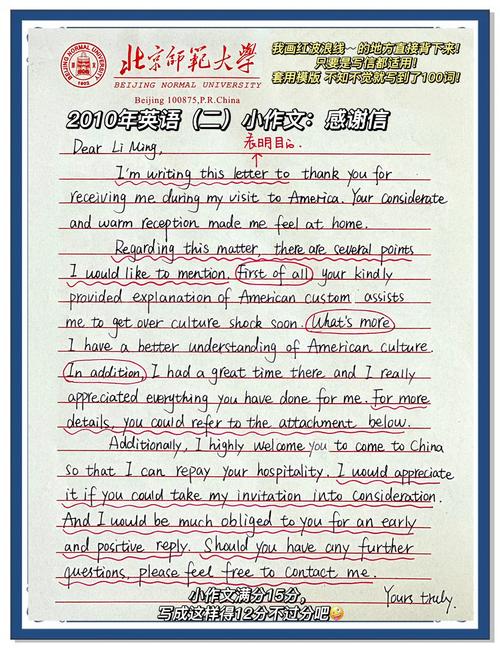 BEIJING NORMAL UNIVERSITY
1902
北京师范大学
BEIJING NORMAL UNIVERSITY
Beijing 100875,P.R.China
我画红波浪线~的地方直接背下来!
只要是写信都适用!
套用模版 不知不觉就写到了100词!
2010年英语（二）小作文：感谢信
Dear Li Ming,
表明目的.
I'm writing this letter to thank you for
receiving me during my visit to America. Your considerate
and warm reception made me feel at home.
Regarding this matter, there are several points
I would like to mention. First of all your kindly
provided explanation of American custom assists
me to get over culture shock soon. What's more
I have a better understanding of American culture.
In addition, I had a great time there and I really
appreciated everything you have done for me. For more
details, you could refer to the attachment below.
Additionally, I highly welcome you to come to China
so that I can repay your hospitality. I would appreciate
it if you could take my invitation into consideration.
And I would be much obliged to you for an early
and positive reply. Should you have any further
questions, please feel free to contact me.
小作文满分15分，
写成这样得12分不过分吧🤪
Yours truly.